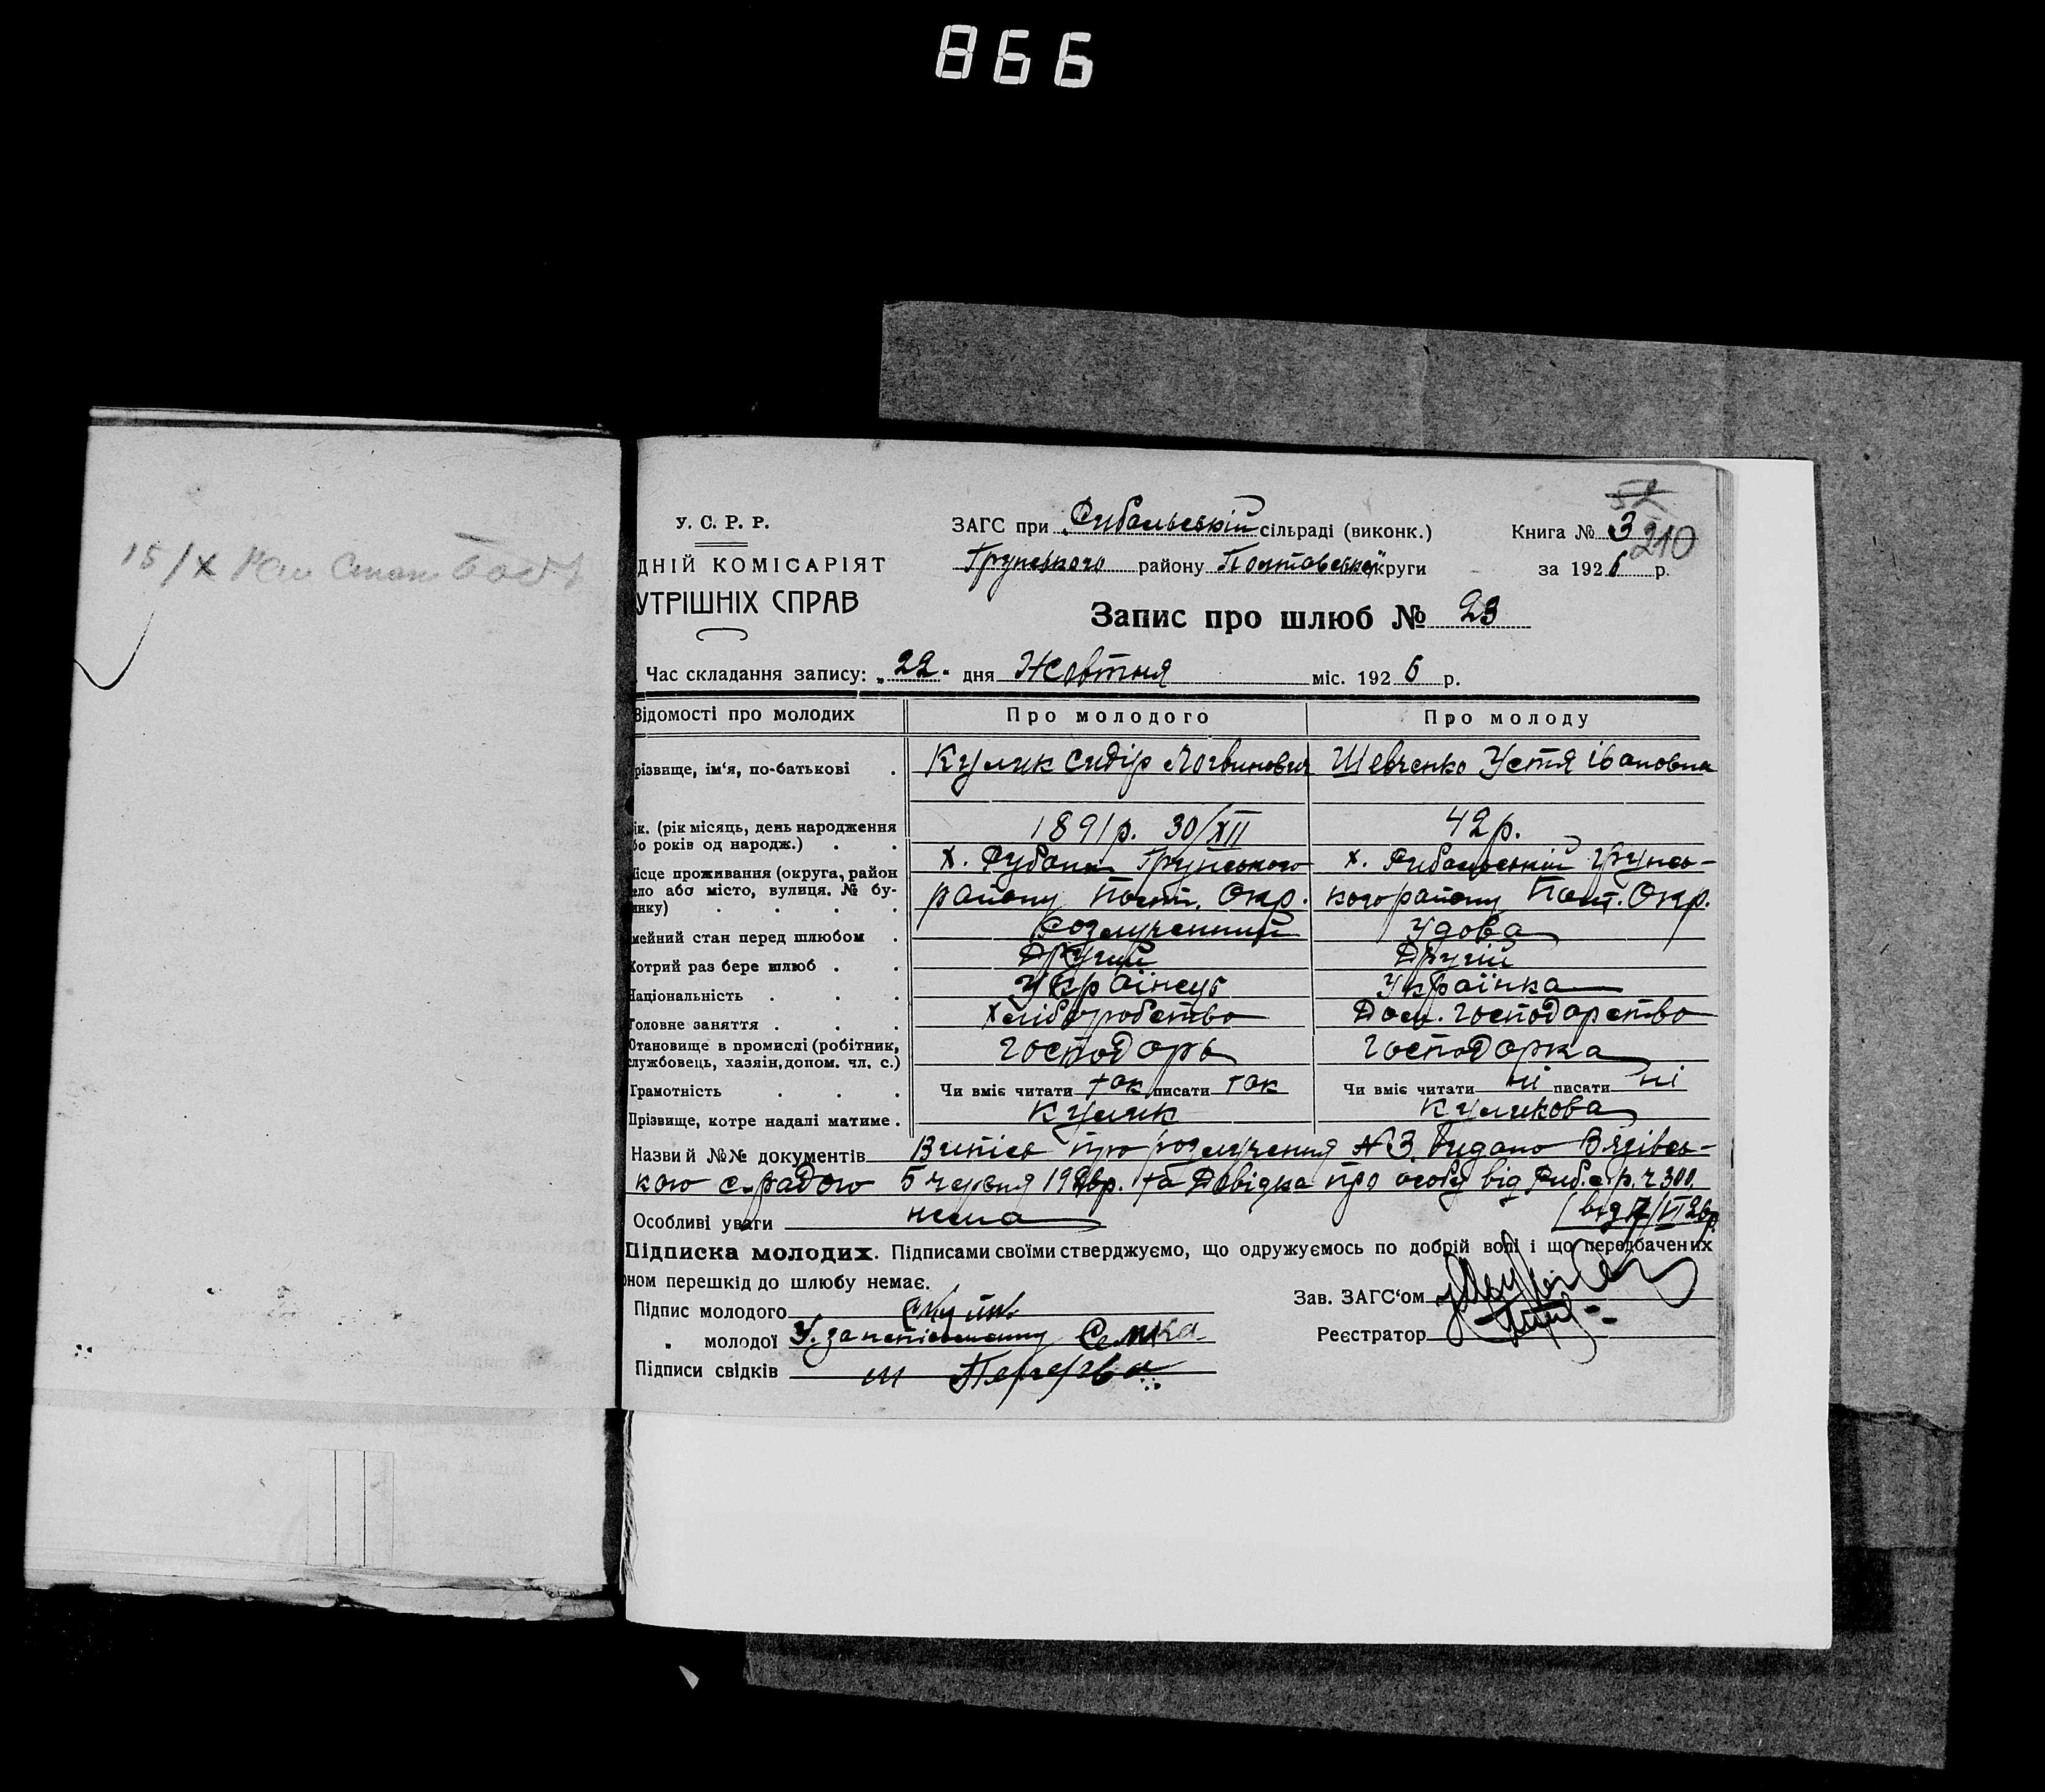 866
15/X
У. С. Р. Р.
ДНІЙ КОМІСАРІЯТ
УТРІШНІХ СПРАВ
ЗАГС при Рибальській сільраді (виконк.)
Грунського району Полтавської округи
Книга № 3
210
за 1926 р.
Запис про шлюб № 23
Час складання запису: „22" дня Жовтня міс. 1926 р.
Відомості про молодих Про молодого Про молоду
різвище, ім'я, по-батькові . Кулик Сидір Логвинович Шевченко Устя Івановна
ік. (рік місяць, день народження 1891р. 30/XII 42р.
бо років од народж.) . .
ісце проживання (округа, район х. Рубани Грунського х. Рибальський Грунсь-
ело або місто, вулиця. № бу- району Полт. Окр. кого району Полт. Окр.
инку) . . . .
мейний стан перед шлюбом . Розлученний Удова
Котрий раз бере шлюб . . Другий Другий
Національність . . . Українець Українка
Головне заняття . . . Хліборобство Дом. Господарство
Становище в промислі (робітник, Господарь Господарка
службовець, хазяін, допом. чл. с.)
Грамотність . . . Чи вміє читати так писати так Чи вміє читати ні писати ні
Прізвище, котре надалі матиме . Кулик Куликова
Назви й №№ документів Випісь про розлучення №3. Видано
кою с.радою 5 червня 1926р. та Довідка про особу від Риб.с.р. ч 300.
Особливі уваги нема від /VI 26р.
Підписка молодих. Підписами своїми стверджуємо, що одружуємось по добрій волі і що передбачених
ном перешкід до шлюбу немає.
Підпис молодого
Зав. ЗАГС'ом
„ молодої У. за неписьменну Семка
Реєстратор
Підписи свідків Перерва